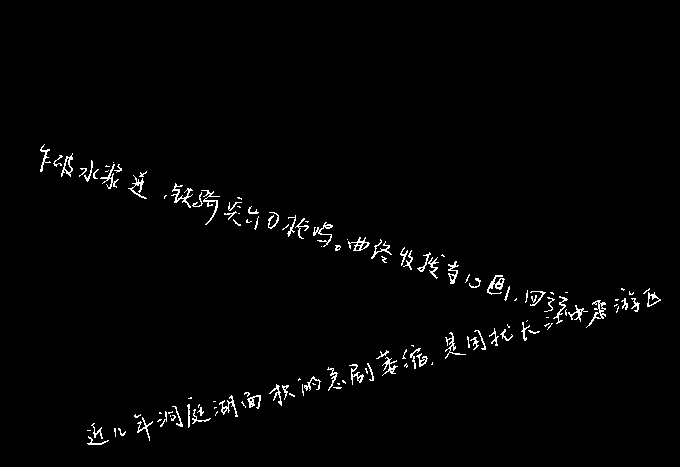 乍破水浆迸,铁骑突出刀枪鸣。曲终收拨当心画,四弦
近几年洞庭湖面积的急剧萎缩,是困扰长江中游区